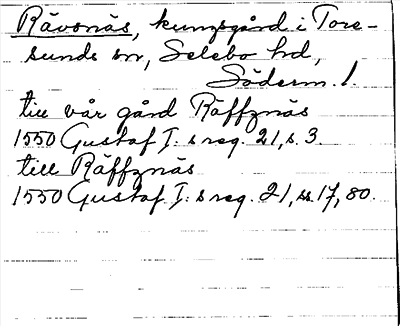 Rävsnäs, kungsgård i Tore-
sunds sn, Selebo hd,
Söderm. l.
till vår gård Räffznäs
1550 Gustaf I: s reg. 21, s. 3.
till Räffznäs
1550 Gustaf I: s reg. 21, ss. 17, 80.